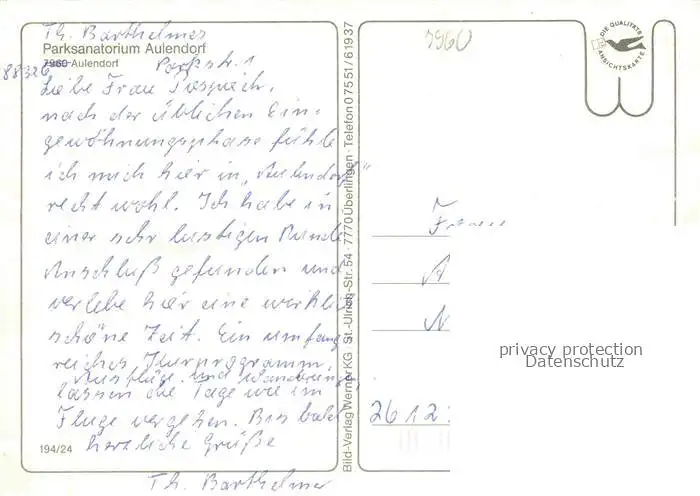 Th. Barthelmes
Parksanatorium Aulendorf
7960 Aulendorf
88326 Parkstr. 1
Liebe Frau
nach der üblichen Ein-
gewöhnungsphase fühle
ich mich hier in „Aulendorf“
recht wohl. Ich habe in
einer sehr lustigen Runde
Anschluß gefunden und
verlebe hier eine wirklich
schöne Zeit. Ein umfang-
reiches Kurprogramm,
Ausflüge und Wanderungen,
lassen die Tage wie im
Fluge vergehen. Bis bald
herzliche Grüße
Th. Barthelmes
194/24
Bild-Verlag Werner KG · St.-Ulrich-Str. 54 · 7770 Überlingen · Telefon 0 75 51/6 19 37
7960
DIE QUALITÄTS
ANSICHTSKARTE
Frau
A
N
2612
privacy protection
Datenschutz